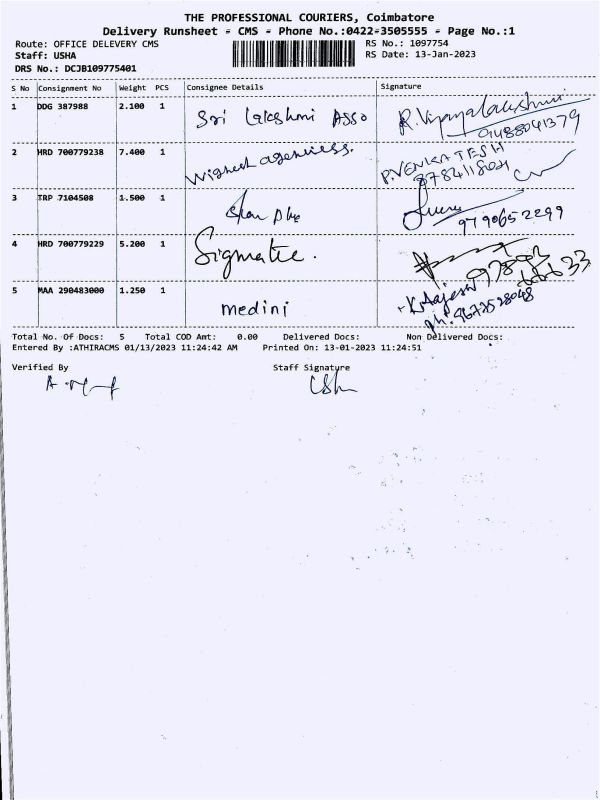 THE PROFESSIONAL COURIERS, Coimbatore
Delivery Runsheet - CMS - Phone No.:0422-3505555 - Page No.:1
Route: OFFICE DELEVERY CMS
RS No.: 1097754
Staff: USHA
RS Date: 13-Jan-2023
DRS No.: DCJB109775401
S No Consignment No Weight PCS Consignee Details Signature
1 DDG 387988 2.100 1 Sri Lakshmi Asso R. Vijayalakshmi
9488041379
2 HRD 700779238 7.400 1 P.VENKATESH
3 TRP 7104508 1.500 1
9790652299
4 HRD 700779229 5.200 1
5 MAA 290483000 1.250 1 medini
Total No. Of Docs: 5 Total COD Amt: 0.00 Delivered Docs: Non Delivered Docs:
Entered By :ATHIRACMS 01/13/2023 11:24:42 AM Printed On: 13-01-2023 11:24:51
Verified By Staff Signature